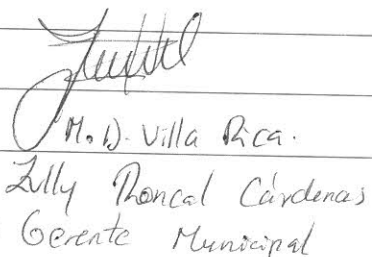 M.D. Villa Rica.
Zully Roncal Cárdenas
Gerente Municipal